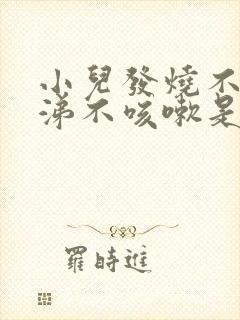 小兒發燒不
涕不咳嗽是
羅時進